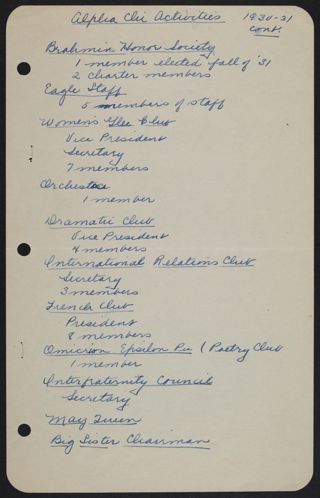 Alpha Chi Activities 1930-31
Cont.
Brahmin Honor Society
1 member elected fall of '31
2 charter members
Eagle Staff
5 members of staff
Women's Glee Club
Vice President
Secretary
7 members
Orchestra
1 member
Dramatic Club
Vice President
4 members
International Relations Club
Secretary
3 members
French Club
President
8 members
Omicron Epsilon Pi (Poetry Club
1 member
Interfraternity Council
Secretary
May Queen
Big Sister Chairman